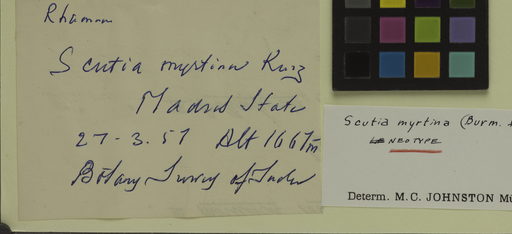 Scutia myrtina Kurz
Madras State
27 - 3. 57 Alt 1667m
Botany Survey of India
Scutia myrtina (Burm.
NEOTYPE
Determ. M.C. JOHNSTON